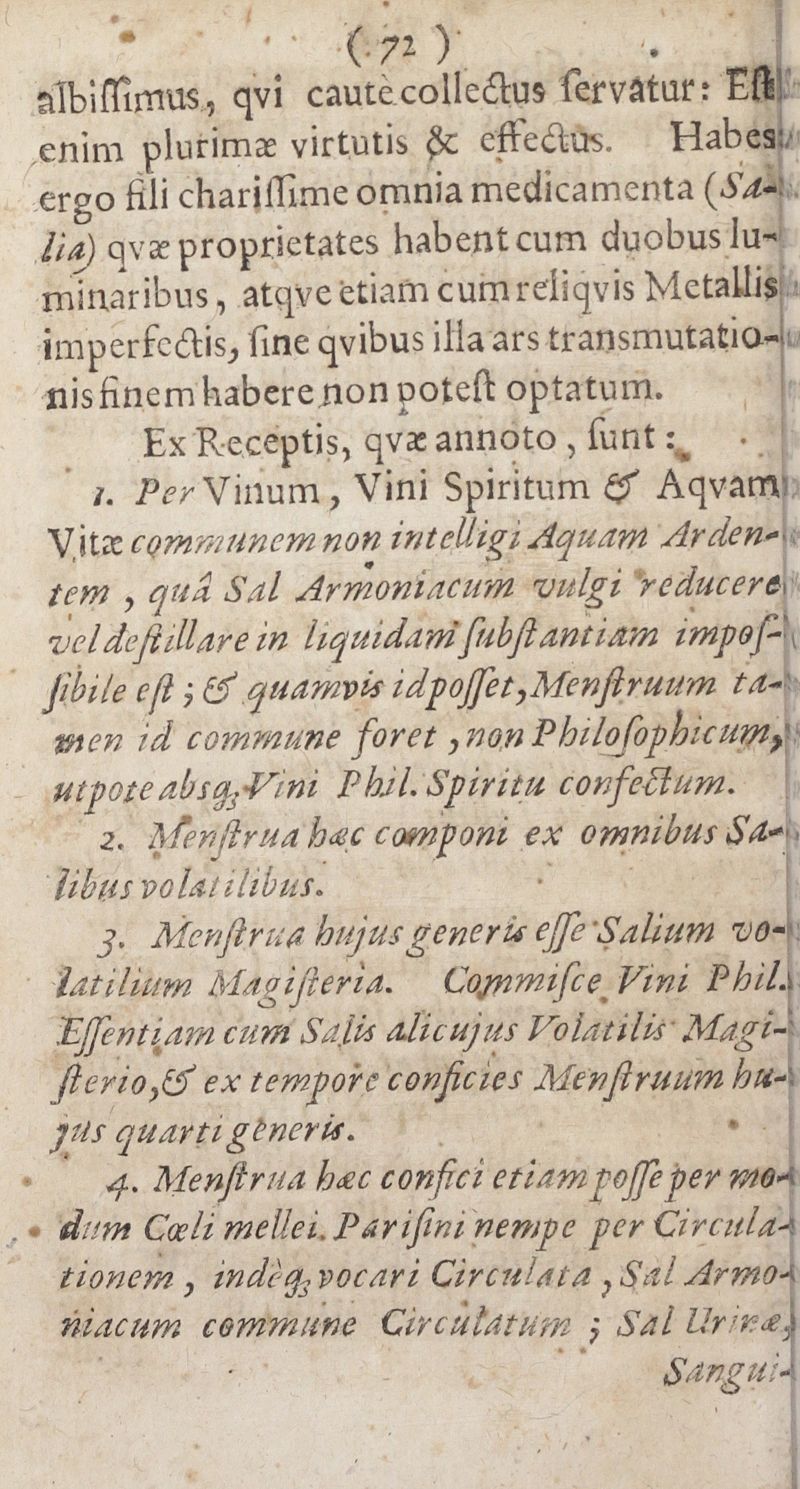 ( 72 )
albiſſimus, qvi cautè collectus ſervatur: Eſt
enim plurimæ virtutis & effectûs. Habes
ergo fili chariſſime omnia medicamenta (Sa-
lia) qvæ proprietates habent cum duobus lu-
minaribus, atqve etiam cum reliqvis Metallis
imperfectis, ſine qvibus illa ars transmutatio-
nis finem habere non poteſt optatum.
Ex Receptis, qvæ annoto, ſunt:
1. Per Vinum, Vini Spiritum & Aqvam
Vitæ communem non intelligi Aquam Arden-
tem, quâ Sal Armoniacum vulgi reducere
vel deſtillare in liquidam ſubſtantiam impoſ-
ſibile eſt; & quamvis id poſſet, Menſtruum ta-
men id commune foret, non Philoſophicum,
utpote absq; Vini Phil. Spiritu confectum.
2. Menſtrua hæc componi ex omnibus Sa-
libus volatilibus.
3. Menſtrua hujus generis eſſe Salium vo-
latilium Magiſteria. Commiſce Vini Phil.
Eſſentiam cum Salis alicujus Volatilis Magi-
ſterio, & ex tempore conficies Menſtruum hu-
jus quarti generis.
4. Menſtrua hæc confici etiam poſſe per mo-
dum Cœli mellei Pariſini nempe per Circula-
tionem, indèq; vocari Circulata, Sal Armo-
niacum commune Circulatum; Sal Urinæ,
Sangui-